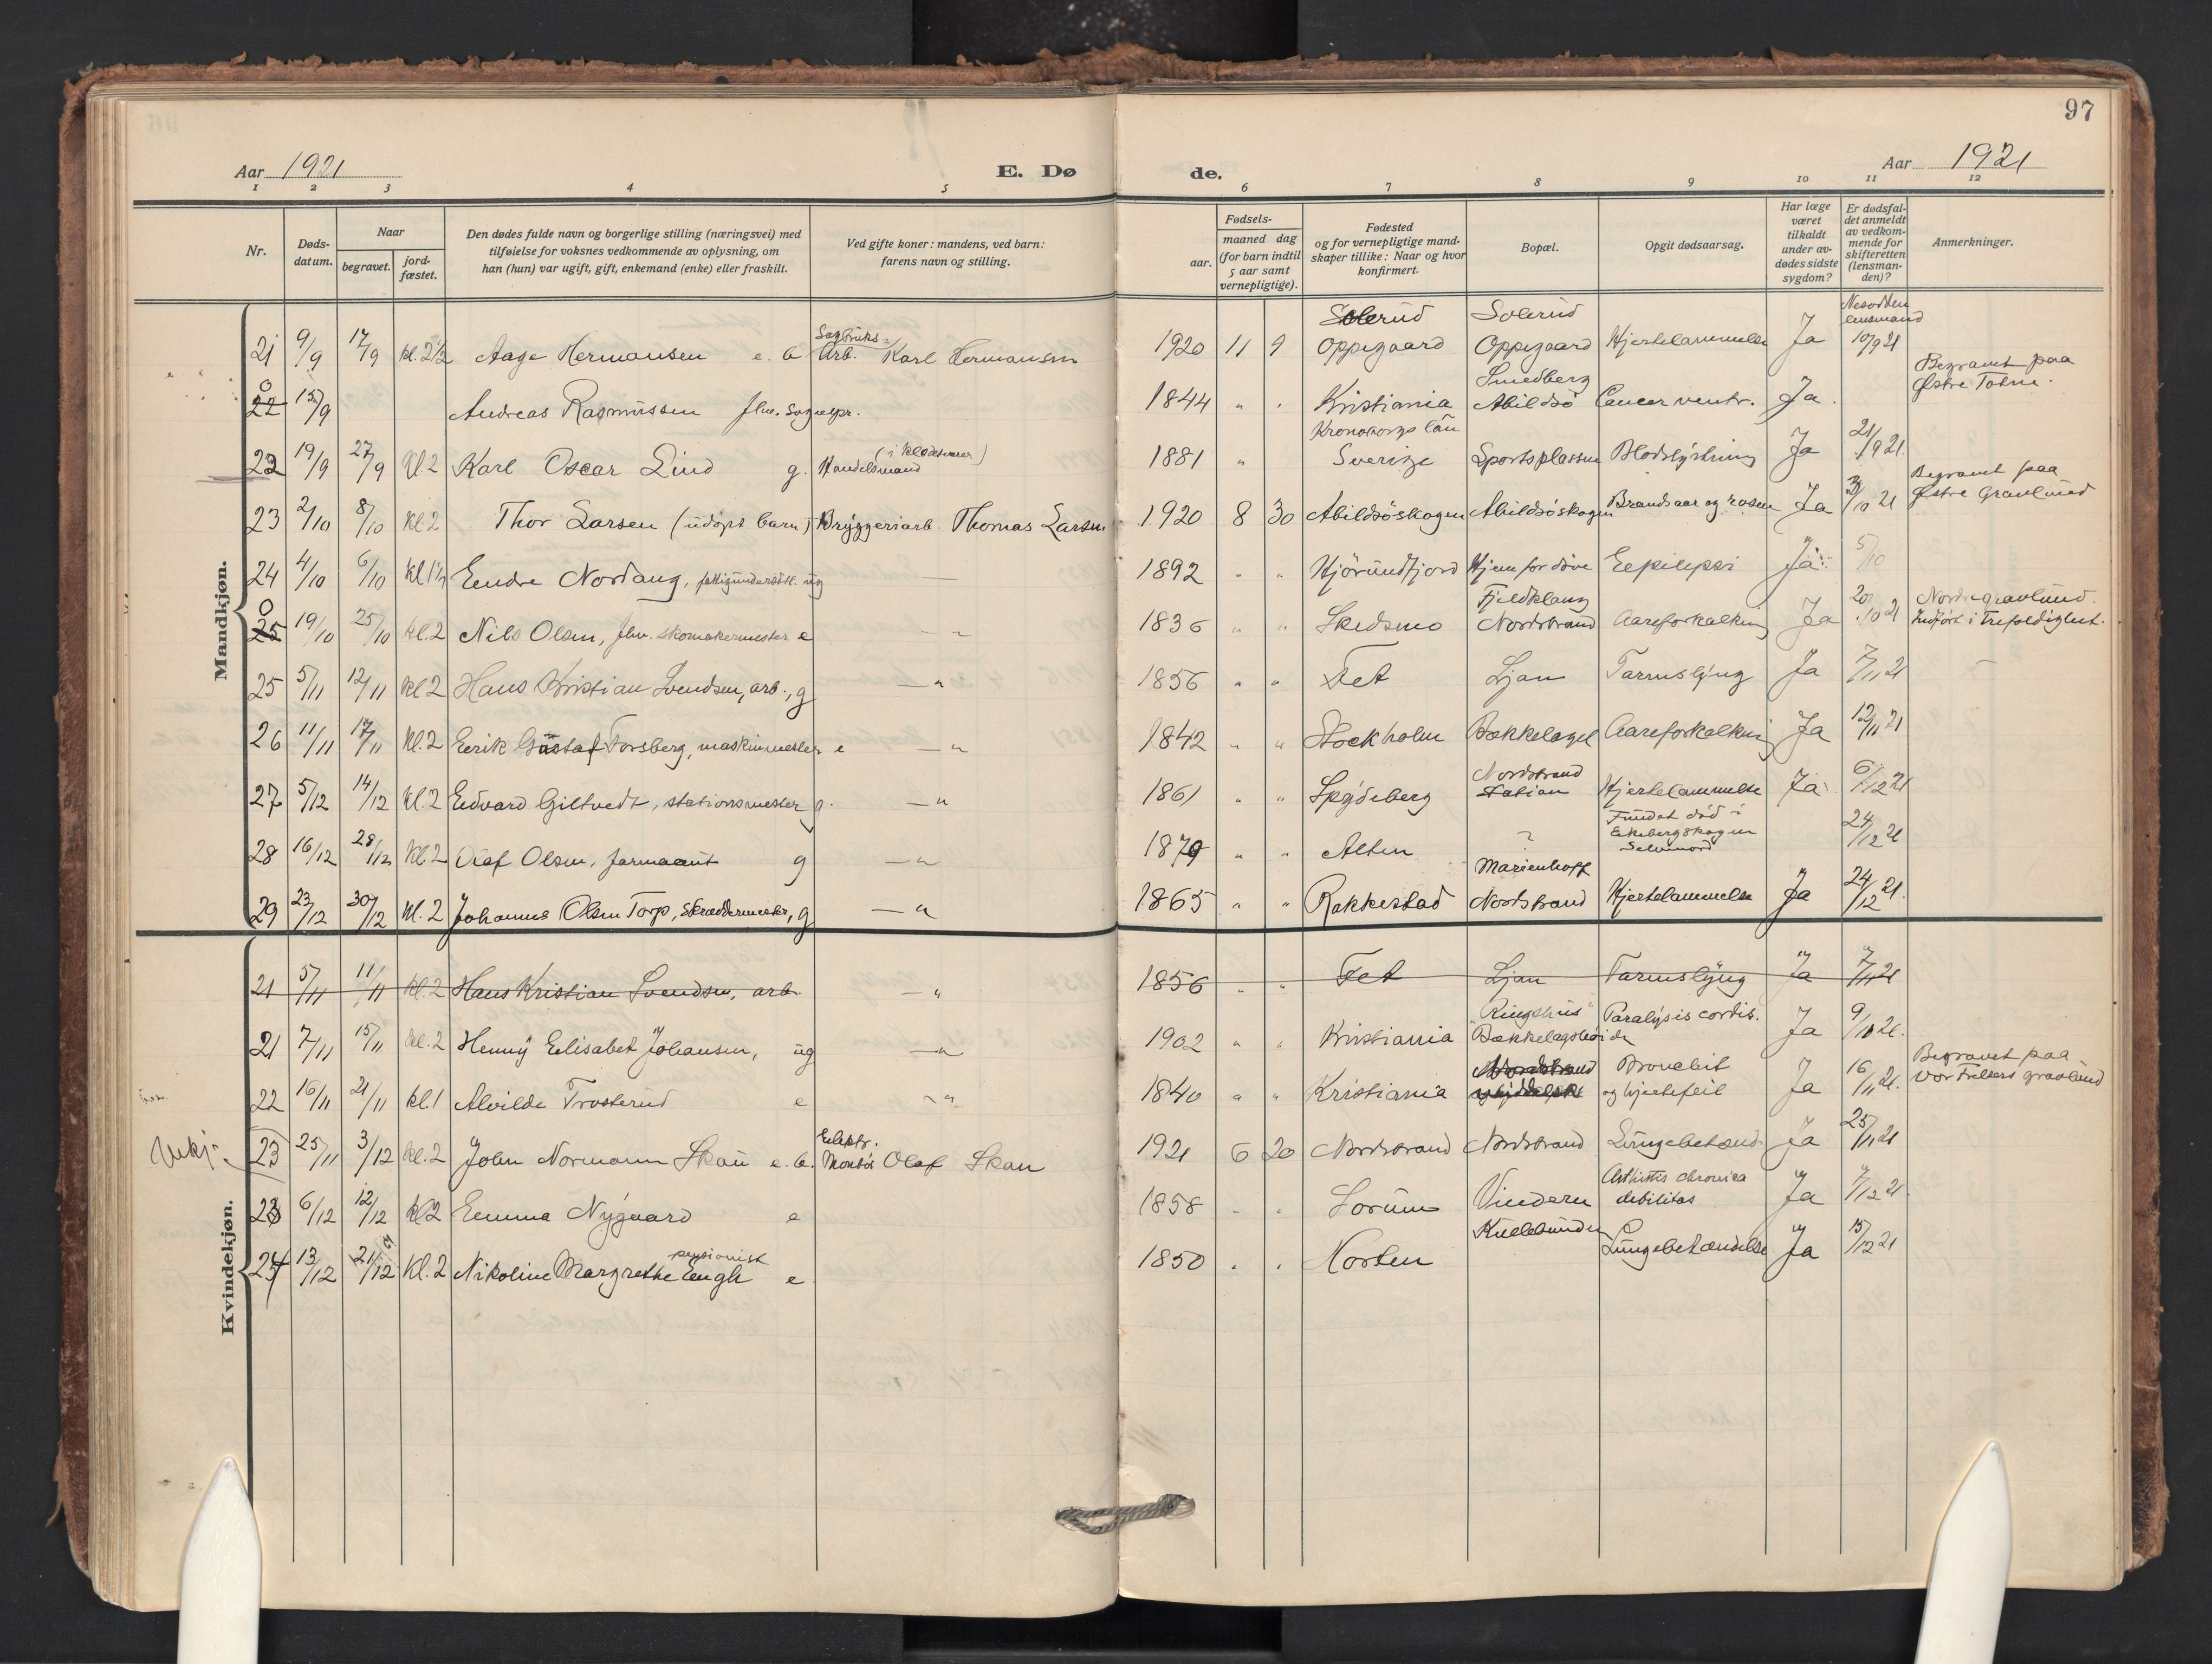 97
Aar 1921 E. Dø de. Aar 1921
1 2 3 4 5 6 7 8 9 10 11 12
Nr. Døds-datum. Naar begravet. jord-fæstet. Den dødes fulde navn og borgerlige stilling (næringsvei) med tilføielse for voksnes vedkommende av oplysning, om han (hun) var ugift, gift, enkemand (enke) eller fraskilt. Ved gifte koner: mandens, ved barn: farens navn og stilling. Fødsels- aar. maaned dag (for barn indtil 5 aar samt vernepligtige). Fødested og for vernepligtige mandskaper tillike: Naar og hvor konfirmert. Bopæl. Opgit dødsaarsag. Har læge været tilkaldt under avdødes sidste sygdom? Er dødsfaldet anmeldt av vedkommende for skifteretten (lensmanden)? Anmerkninger.
Mandkjøn.
21 9/9 17/9 kl. 2 1/2 Aage Hermansen e. b Sagbruks- Arb. Karl Hermansen 1920 11 9 Solerud Oppegaard Solerud Oppegaard Hjertelammelse Ja Nesodden lensmand 10/9 21
0 22 15/9 Andreas Rasmussen fhv. Sognepr. 1844 " " Kristiania Smedberg Abildsö Cancer ventr. Ja. Begravet paa Østre Toten.
22 19/9 27/9 Kl. 2 Karl Oscar Lind g. Handelsmand 1881 " Sverige Sportsplassen Ja 21/9 21.
23 2/10 8/10 Kl 2 Thor Larsen (udöpt barn) Bryggeriarb. Thomas Larsen 1920 8 30 Abildsöskogen Abildsöskogen Brandsaar og rosen Ja 3/10 21 Begravet paa Østre Gravlund
24 4/10 6/10 Kl 1 1/2 Endre Nordang, fattigunderstöt. ug — 1892 " " Hjörundfjord Hjem for döve Eepilepsi Ja 5/10
0 25 19/10 25/10 Kl. 2 Nils Olsen, fhv. skomakermester e " 1836 " " Skedsmo Fjeldklang Nordstrand Aareforkalkning Ja 20/10 21 Nordre gravlund. Indfört i Trefoldighet.
25 5/11 12/11 Kl 2 Hans Kristian Svendsen, arb., g — " 1856 " " Fet Ljan Tarmslyng Ja 7/11 21
26 11/11 17/11 Kl. 2 Eerik Gustaf Forsberg, maskinmester e — " 1842 " " Stockholm Bækkelaget Aareforkalkning Ja 12/11 21
27 5/12 14/12 Kl. 2 Eedvard Giltvedt, stationsmester g. — " 1861 " " Spydeberg Nordstrand Station Hjertelammelse Ja 6/12 21
28 16/12 28/12 Kl 2 Olaf Olsen, farmaceut g — " 1879 " " Alten ? Fundet död i Eekebergskogen Selvmord 24/12 21
29 23/12 30/12 Kl. 2 Johannes Olsen Torp, Skræddermester, g — " 1865 " " Rakkestad Marienhoff Nordstrand Hjertelammelse Ja 24/12 21.
Kvindekjøn.
21 5/11 11/11 Kl. 2 Hans Kristian Svendsen, arb. — " 1856 " " Fet Ljan Tarmslyng Ja 7/11 21
21 7/11 15/11 Kl. 2 Henny Eelisabet Johansen, ug — " 1902 " " Kristiania "Ringshus" Bækkelagshöiden Paralysis cordis. Ja 9/11 21.
22 16/11 21/11 Kl. 1 Alvilde Trosterud e — " 1840 " " Kristiania Bronchit og hjertefeil Ja 16/11 21. Begravet paa Vor Frelsers gravlund
23 25/11 3/12 Kl. 2 John Normann Skau e. b. Eelektr. Montör Olaf Skau 1921 6 20 Nordstrand Nordstrand Lungebetænd. Ja 25/11 21
23 6/12 12/12 Kl 2 Eemma Nygaard e 1858 " " Sorum Vindern Arthritis chronica debilitas Ja 7/12 21.
24 13/12 21/12 Kl. 2 Nikoline Margrethe Eengh pensionist e 1850 " " Horten Lungebetændelse Ja 15/12 21